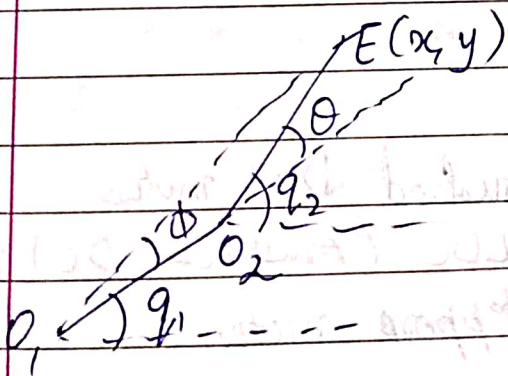 E(x, y)
θ
q₂
φ
O₂
q₁
O₁